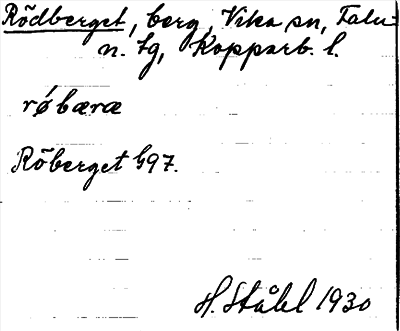 Rödberget, berg, Vika sn, Falu-
n. tg, Kopparb. l.
røbæræ
Röberget G97.
H. Ståhl 1930